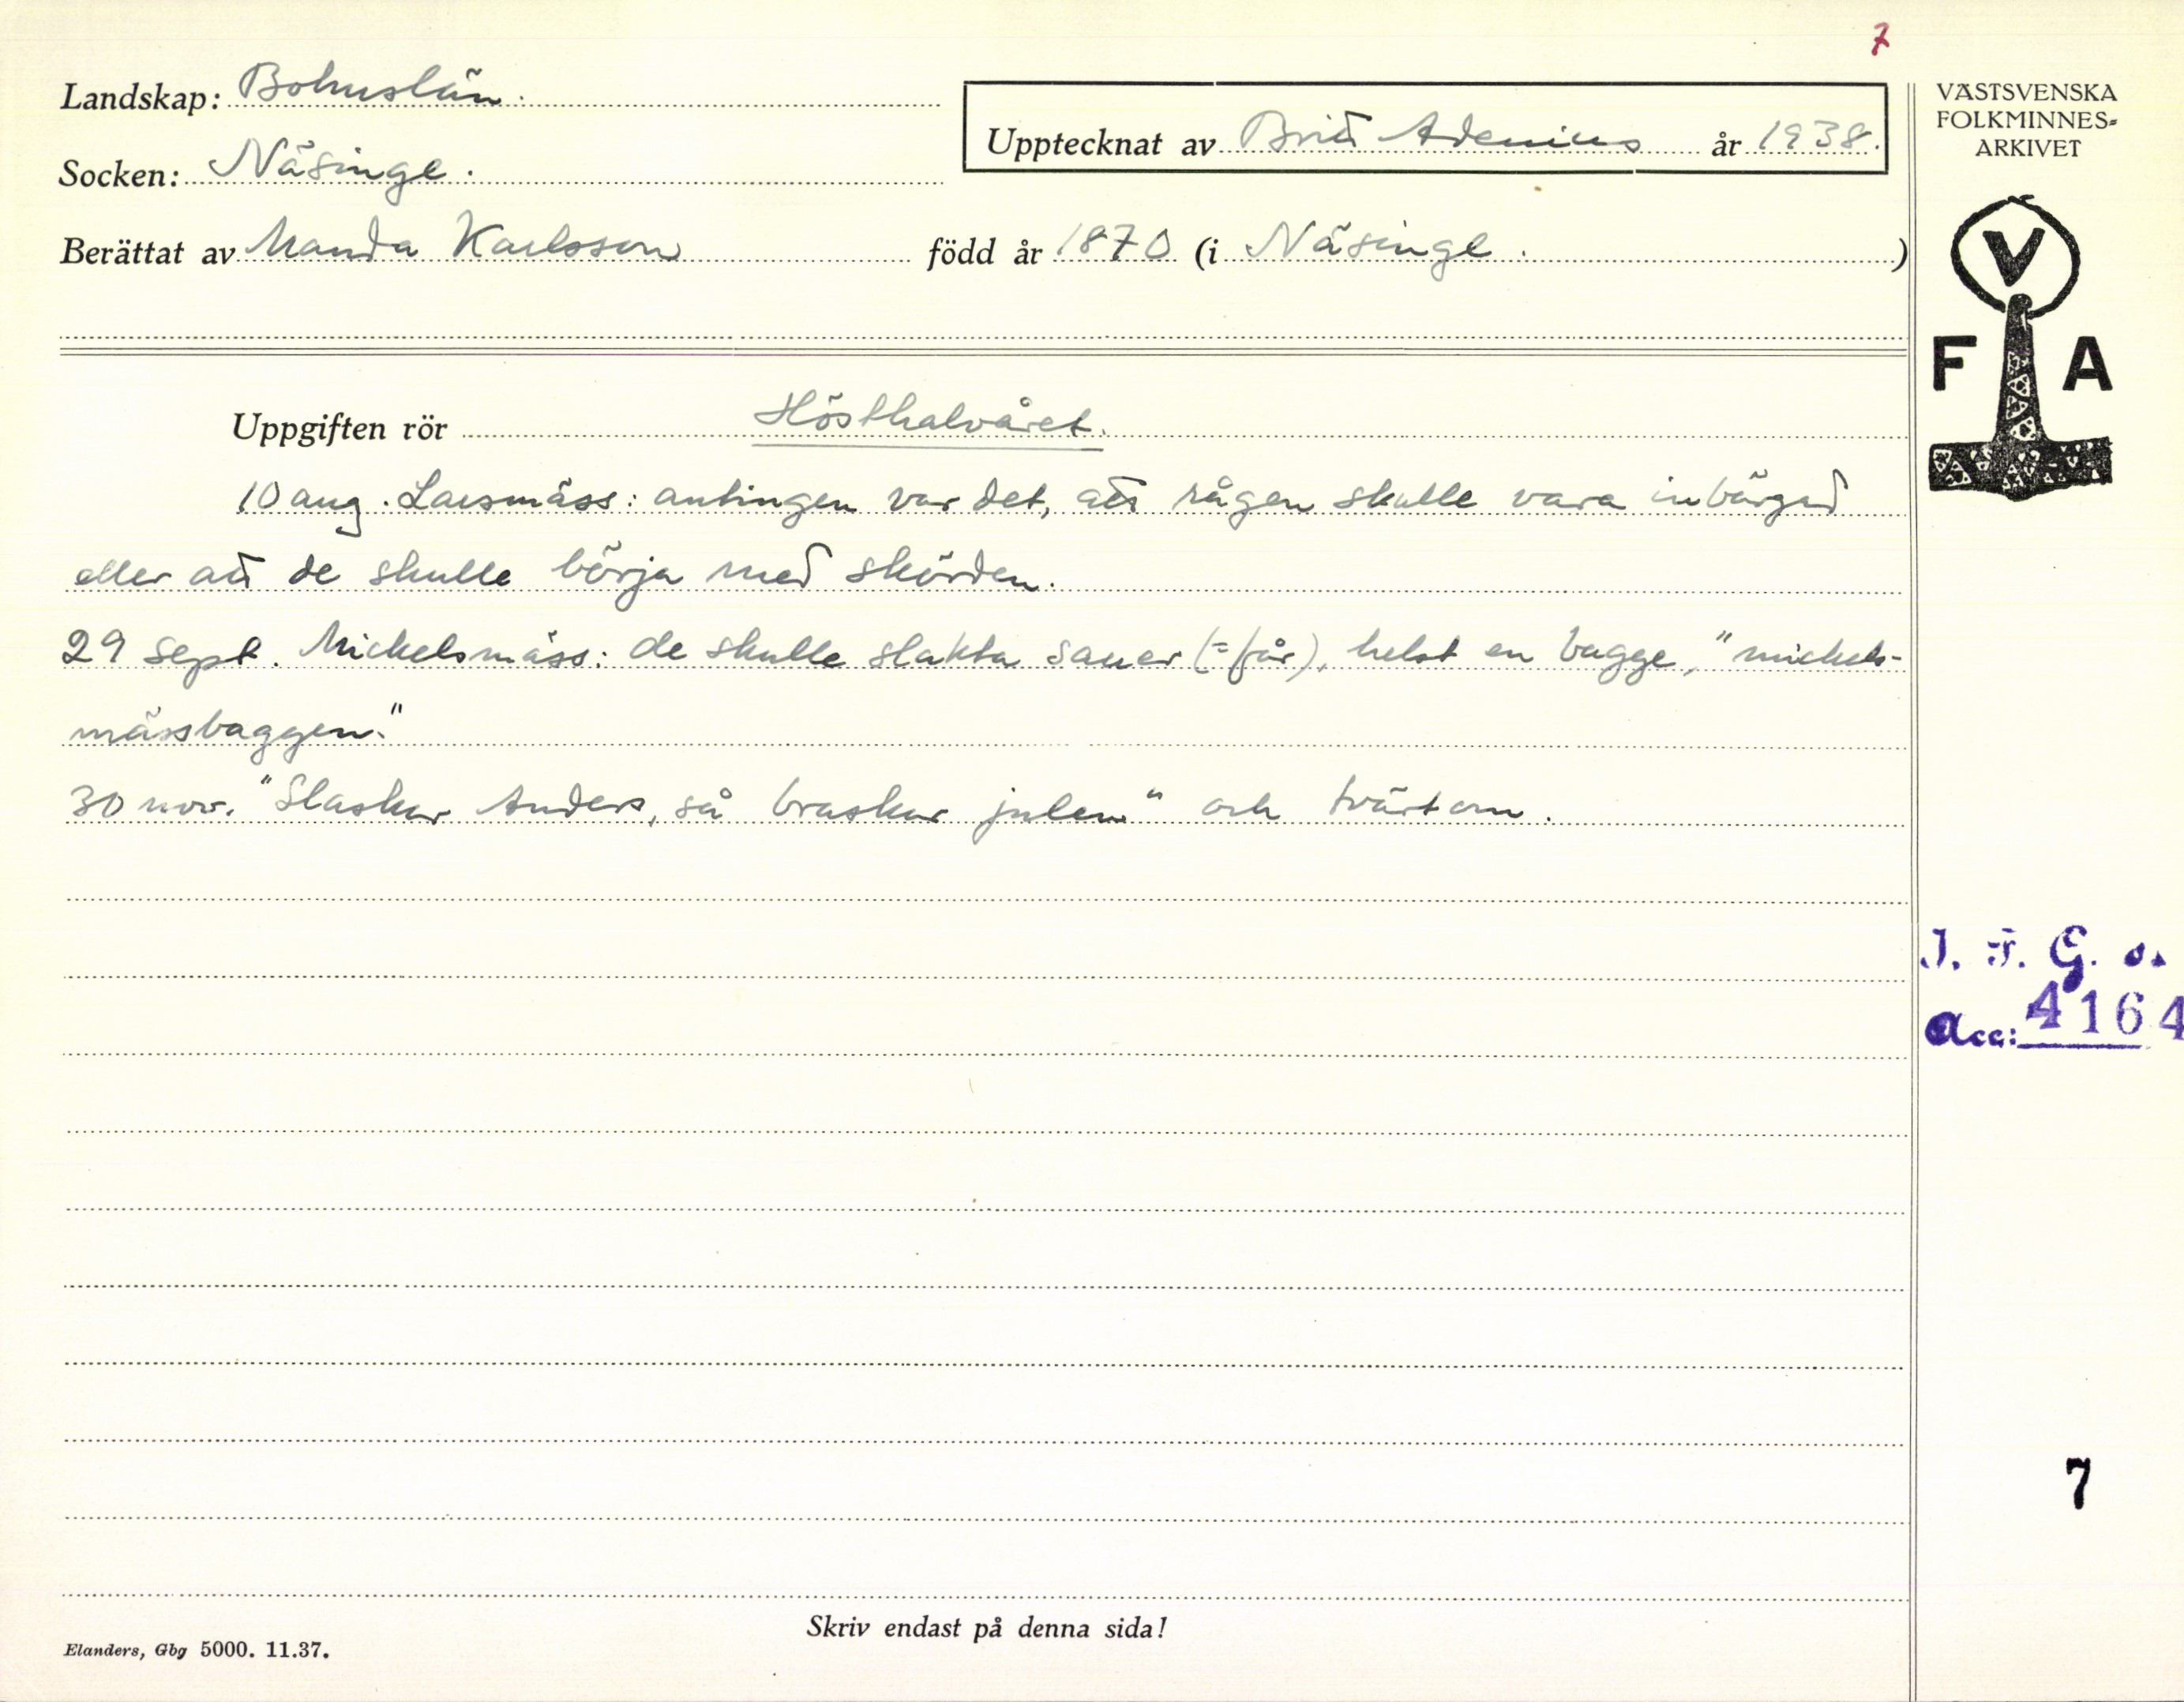 7
Landskap: Bohuslän.
Socken: Näsinge.
Upptecknat av Britt Adenius år 1938.
Berättat av Manda Karlsson född år 1870 (i Näsinge.)
VÄSTSVENSKA
FOLKMINNES-
ARKIVET
V
F A
Uppgiften rör Hösthalvåret.
10 aug. Larsmäss: antingen var det, att rågen skulle vara inbärgad
eller att de skulle börja med skörden.
29 sept. Mickelsmäss: de skulle slakta sauer (= får), helst en bagge, "mickels-
mässbaggen."
30 nov. "Slaskar Anders, så braskar julen" och tvärtom.
I. F. G. s.
Acc: 4164
7
Skriv endast på denna sida!
Elanders, Gbg 5000. 11.37.